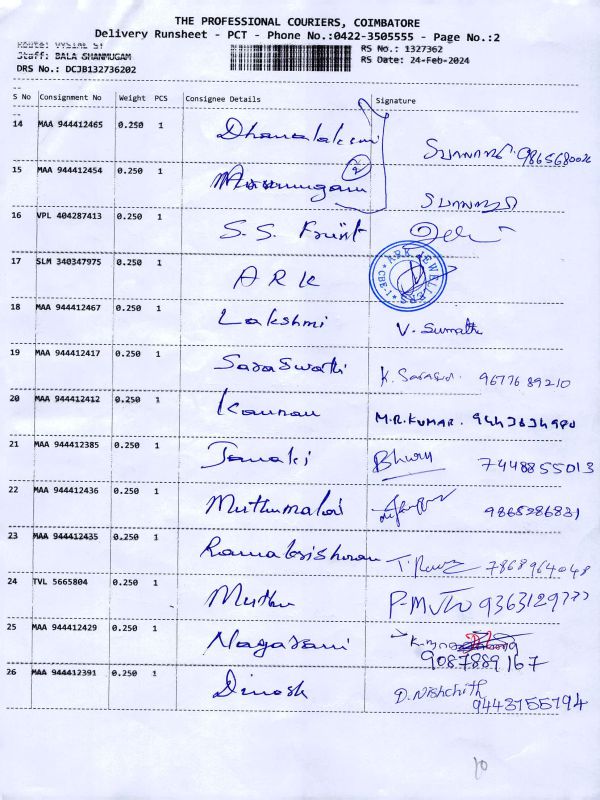 THE PROFESSIONAL COURIERS, COIMBATORE
Delivery Runsheet - PCT - Phone No.:0422-3505555 - Page No.:2
Route: VYSIAL ST
Staff: BALA SHANMUGAM
DRS No.: DCJB132736202
RS No.: 1327362
RS Date: 24-Feb-2024
S No Consignment No Weight PCS Consignee Details Signature
14 MAA 944412465 0.250 1 Dhanalaksmi 9865680026
15 MAA 944412454 0.250 1 Murumugam 2
16 VPL 404287413 0.250 1 S. S. Print
17 SLM 340347975 0.250 1 ARK ARK JEWELLERS CBE-1
18 MAA 944412467 0.250 1 Lakshmi V. Sumathi
19 MAA 944412417 0.250 1 Saraswathi K. 9677689210
20 MAA 944412412 0.250 1 Kannan M.R.KUMAR. 9443634980
21 MAA 944412385 0.250 1 Janaki 7448855013
22 MAA 944412436 0.250 1 Muthumalai 9865286831
23 MAA 944412435 0.250 1 Ramakrishnan 7868964048
24 TVL 5665804 0.250 1 Muthu P-Muthu 9363129777
25 MAA 944412429 0.250 1 Nagarani
9087889167
26 MAA 944412391 0.250 1 Dinesh D. Nishchith
9443155194
10